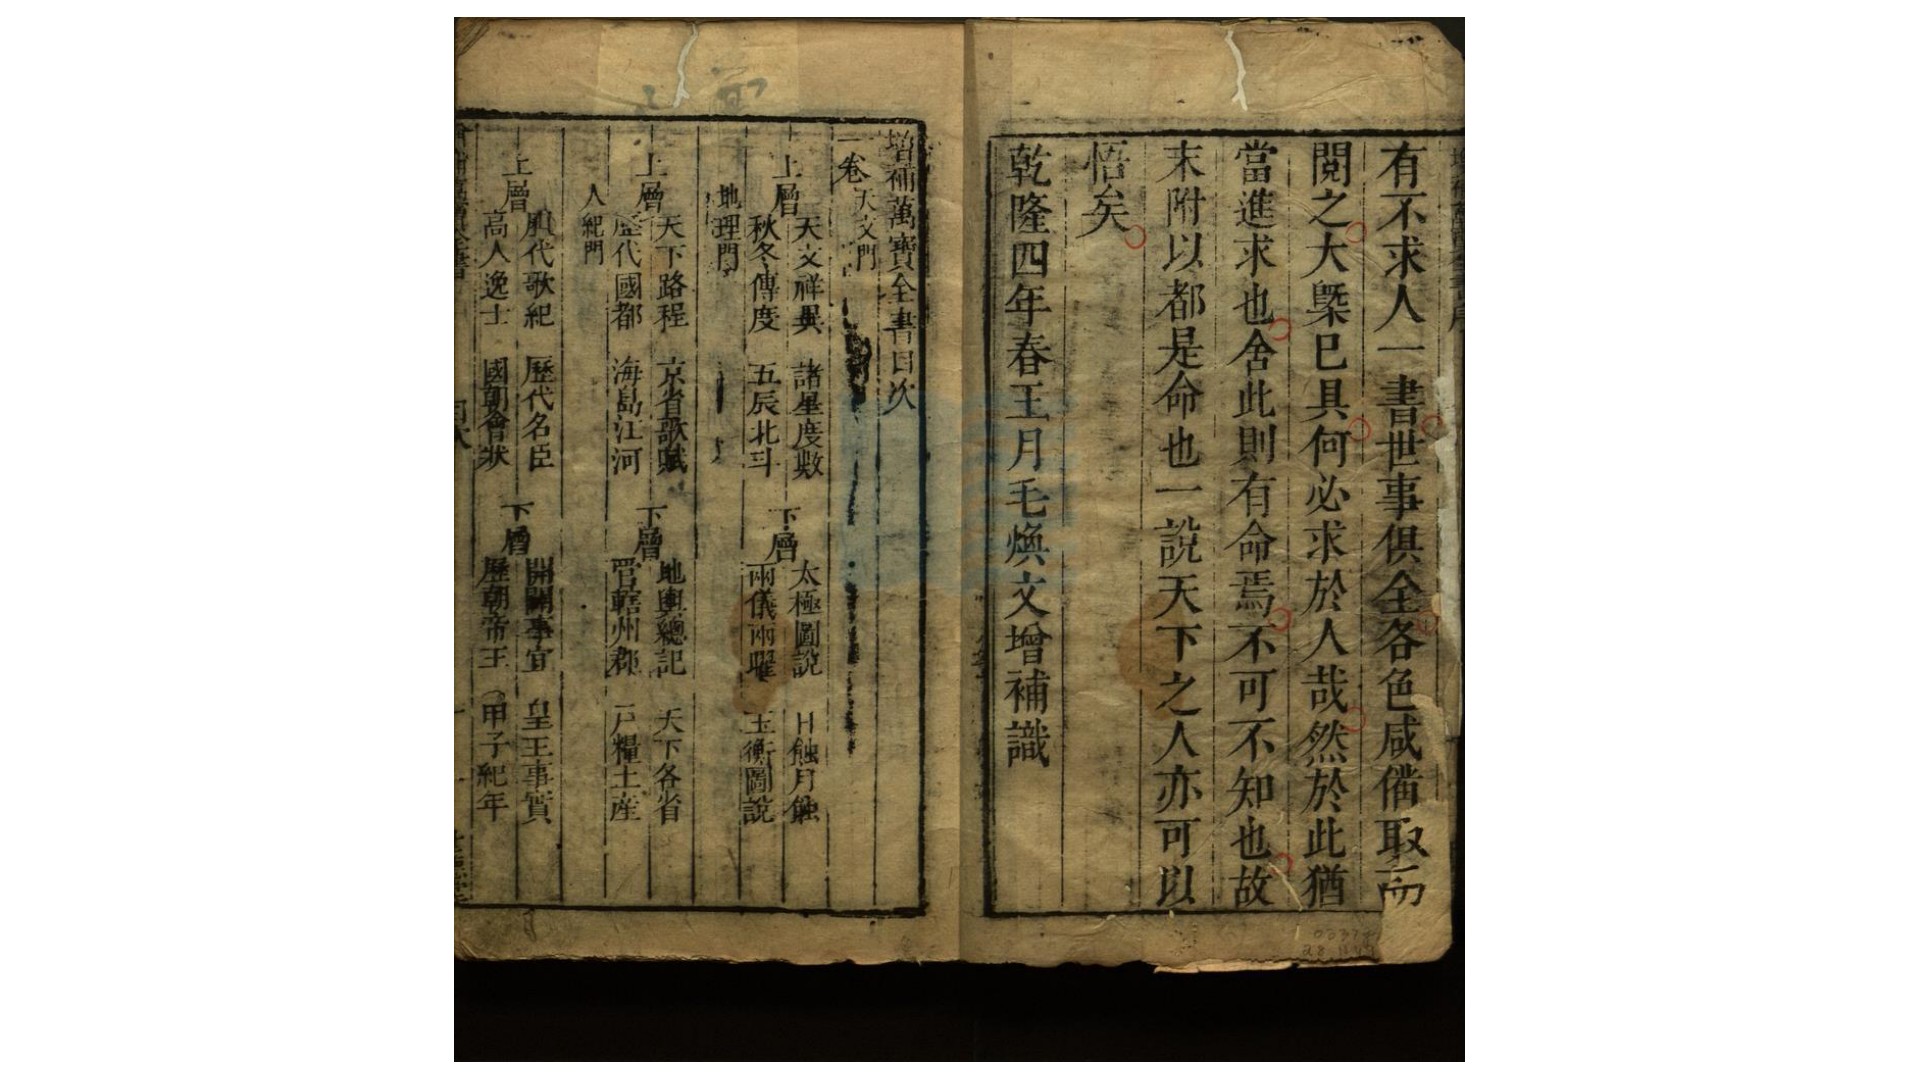 有不求人一書世事俱全各色咸俻取而
閱之大槩已具何必求於人哉然於此猶
當進求也舍此則有命焉不可不知也故
末附以都是命也一說天下之人亦可以
悟矣
乾隆四年春王月毛煥文增補識
增補萬寳全書目次
一卷 天文門
上層 天文祥異 諸星度數 下層 太極圖說 日蝕月蝕
秋冬傳度 五辰北斗 兩儀兩曜 玉衡圖說
地理門
上層 天下路程 京省歌賦 下層 地輿總記 天下各省
歷代國都 海島江河 管轄州郡 戸糧土産
人紀門
上層 歷代歌紀 歷代名臣 下層 開闢事宜 皇王事實
高人逸士 國朝會狀 歷朝帝王 甲子紀年